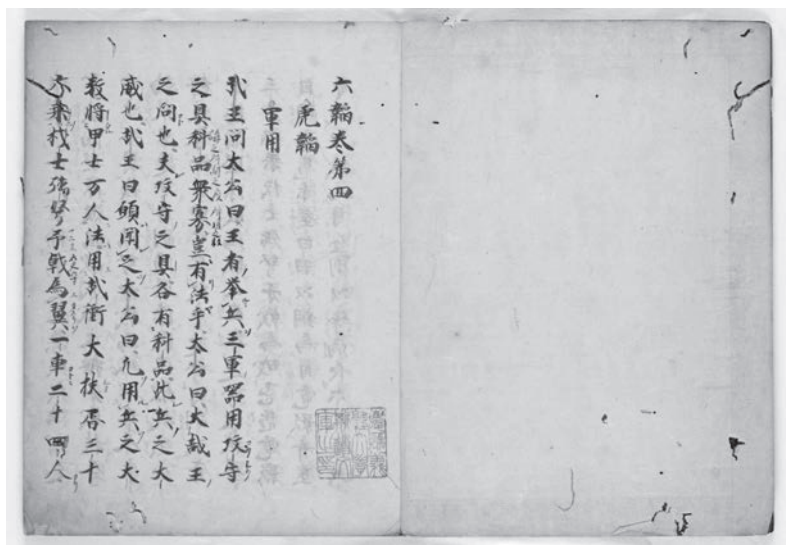 六韜卷第四
虎韜
軍用
武王問太公曰王者舉兵三軍器用攻守
之具科品衆寡豈有法乎太公曰大哉王
之問也夫攻守之具各有科品此兵之大
威也武王曰願聞之太公曰凢用兵之大
数將甲士万人法用武衝大扶胥三十
六乗材士强弩矛戟為翼一車二十四人